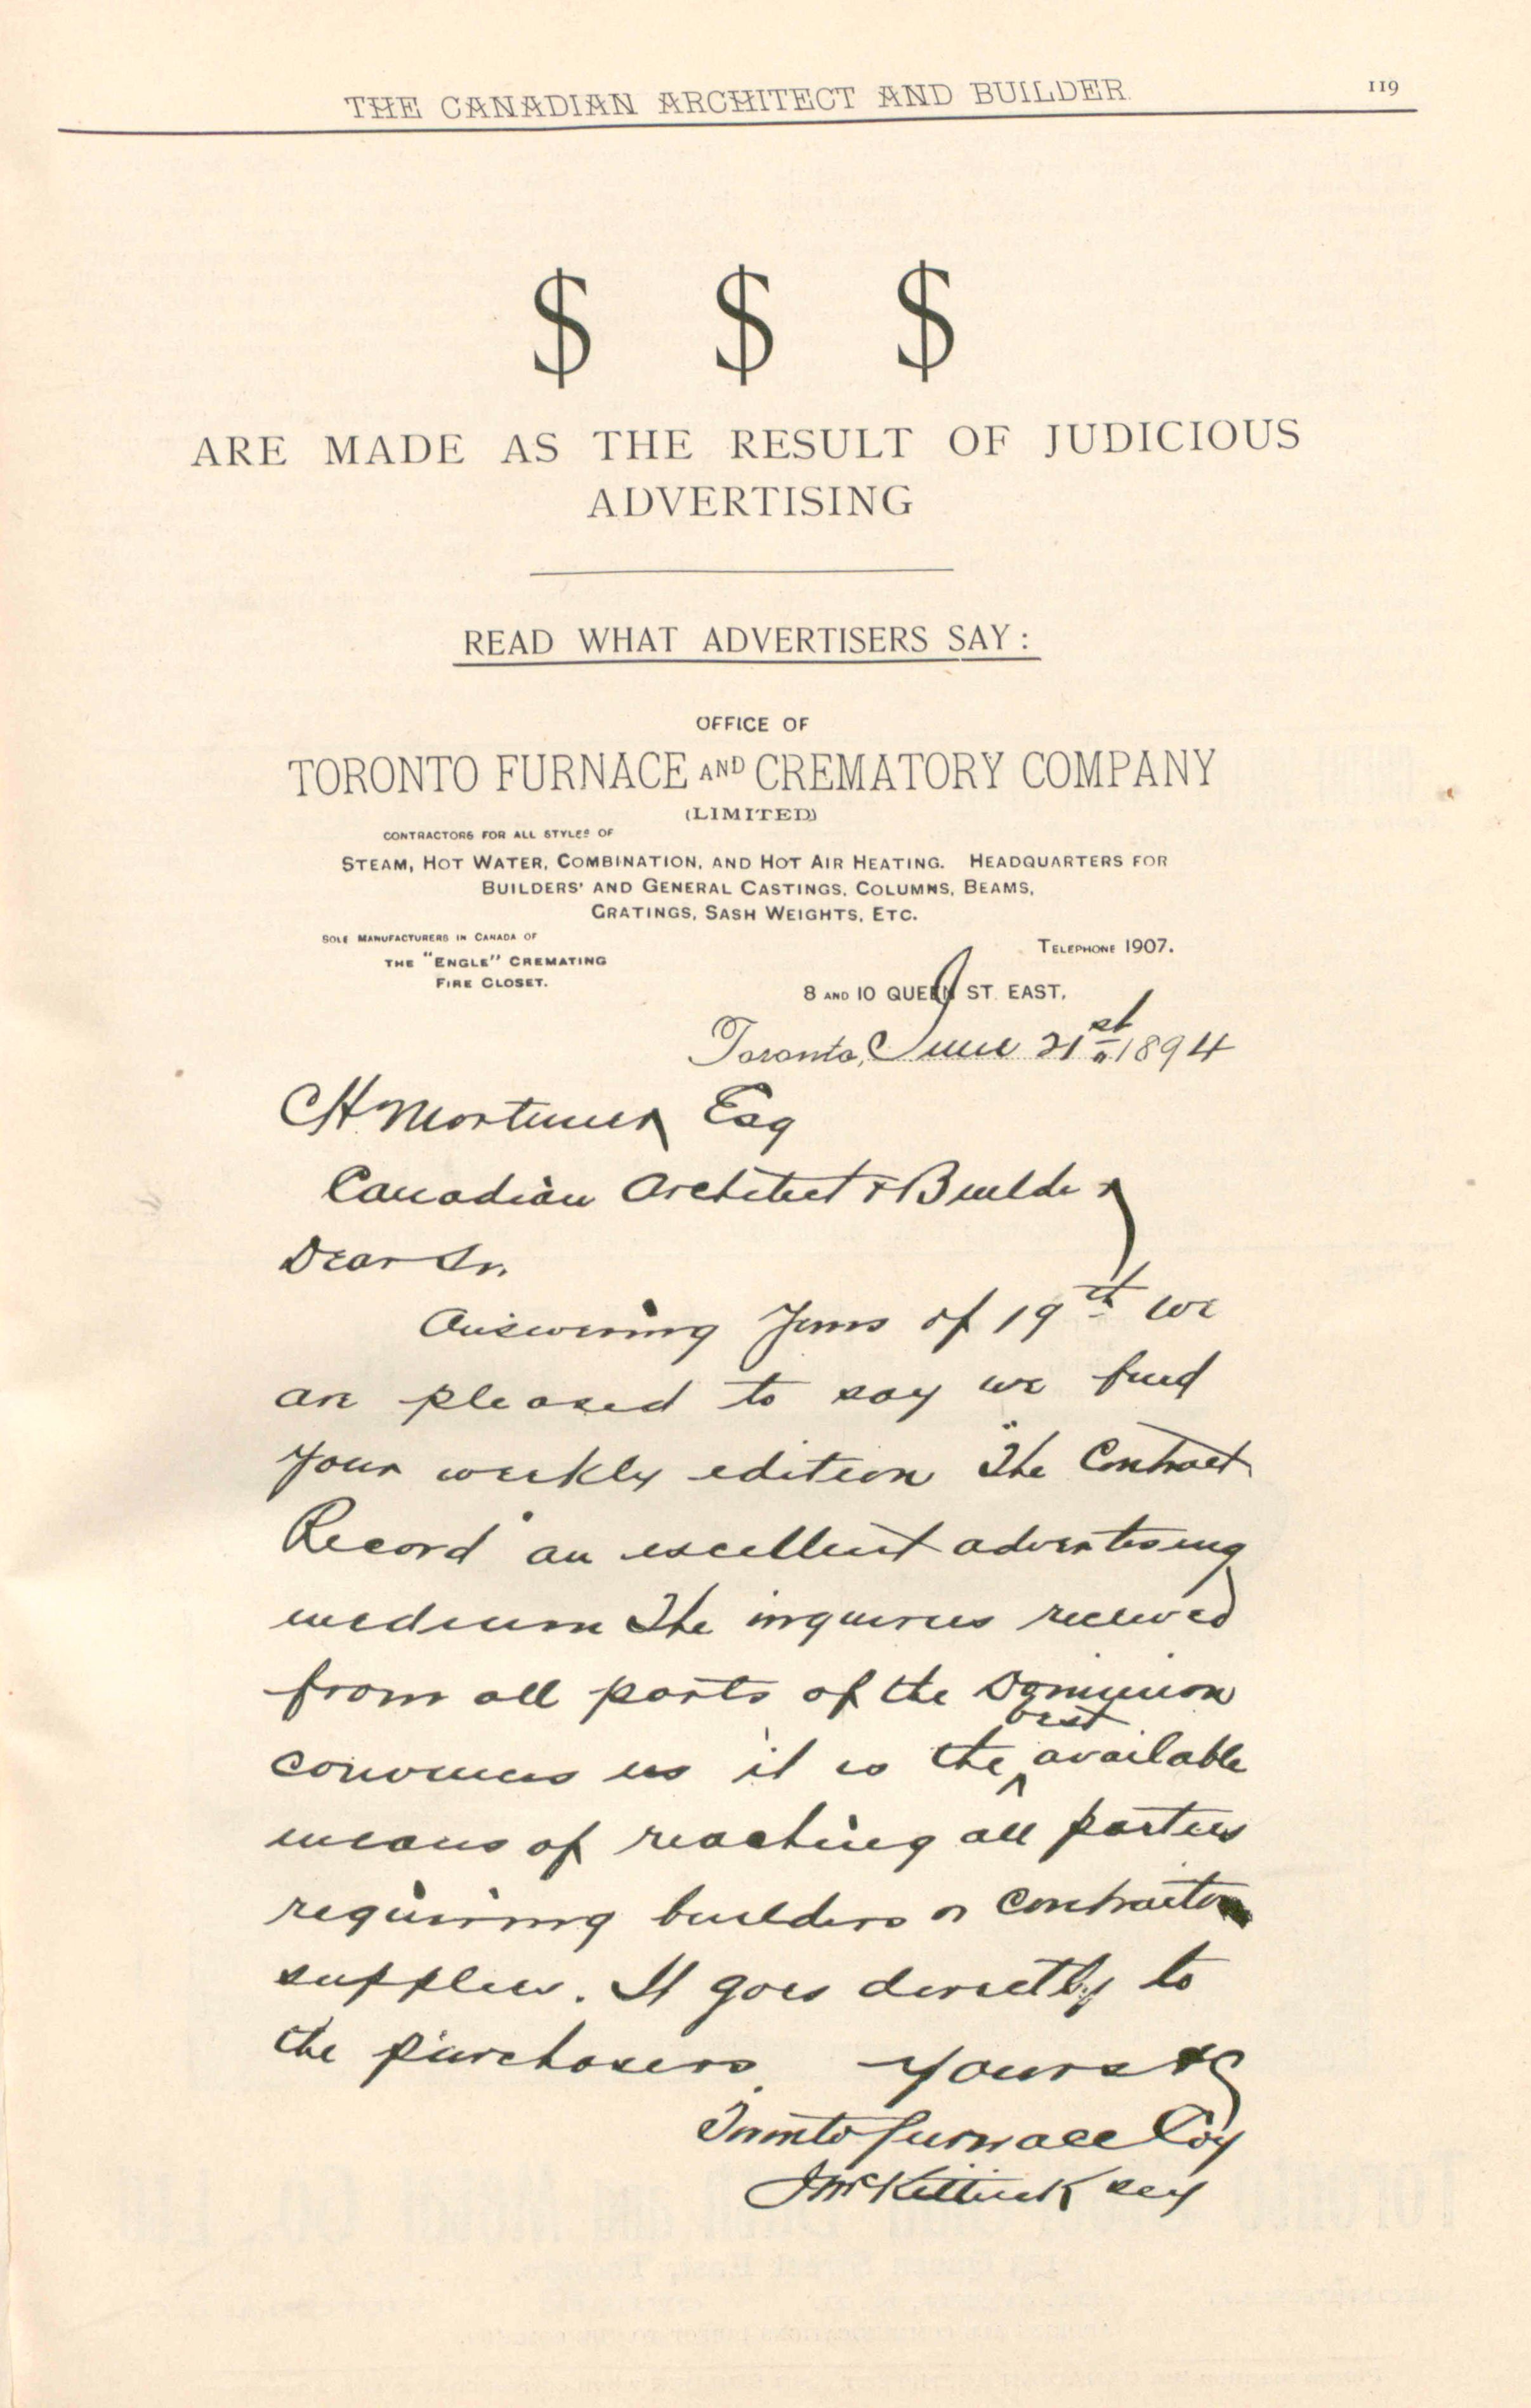 THE CANADIAN ARCHITECT AND BUILDER.
119
$ $ $
ARE MADE AS THE RESULT OF JUDICIOUS
ADVERTISING
READ WHAT ADVERTISERS SAY:
OFFICE OF
TORONTO FURNACE AND CREMATORY COMPANY
(LIMITED)
CONTRACTORS FOR ALL STYLES OF
STEAM, HOT WATER, COMBINATION, AND HOT AIR HEATING. HEADQUARTERS FOR
BUILDERS' AND GENERAL CASTINGS, COLUMNS, BEAMS,
GRATINGS, SASH WEIGHTS, ETC.
SOLE MANUFACTURERS IN CANADA OF
THE "ENGLE" CREMATING
FIRE CLOSET.
TELEPHONE 1907.
8 AND 10 QUEEN ST. EAST,
Toronto, June 21st 1894
CH Mortimer Esq
Canadian Architect & Builder
Dear Sir,
Answering Yours of 19th we
are pleased to say we find
your weekly edition "The Contract
Record" an excellent advertising
medium The inquiries received
from all parts of the Dominion
convinces us it is the best available
means of reaching all parties
requiring builders or contractors
supplies. It goes directly to
the purchasers. Yours
Toronto Furnace Coy
J McKittrick secy